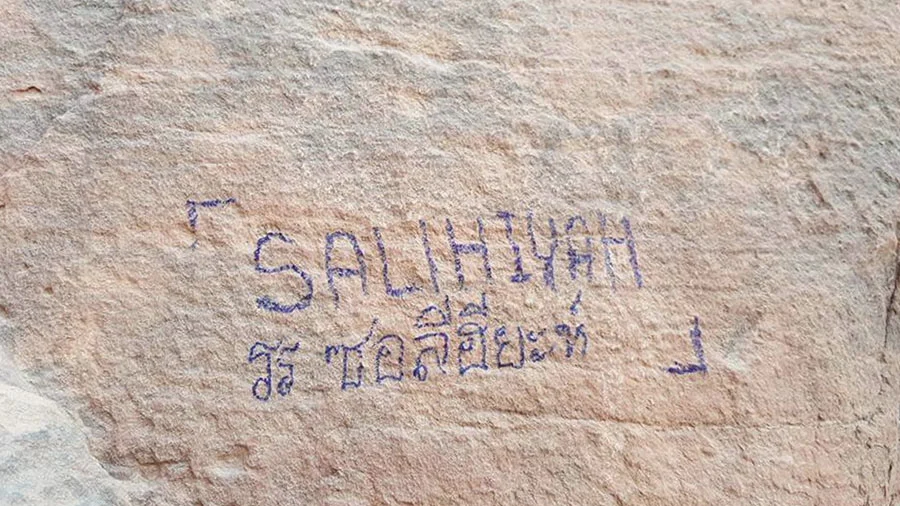 「SALIHIYAH
รร ซอลีฮียะห์」